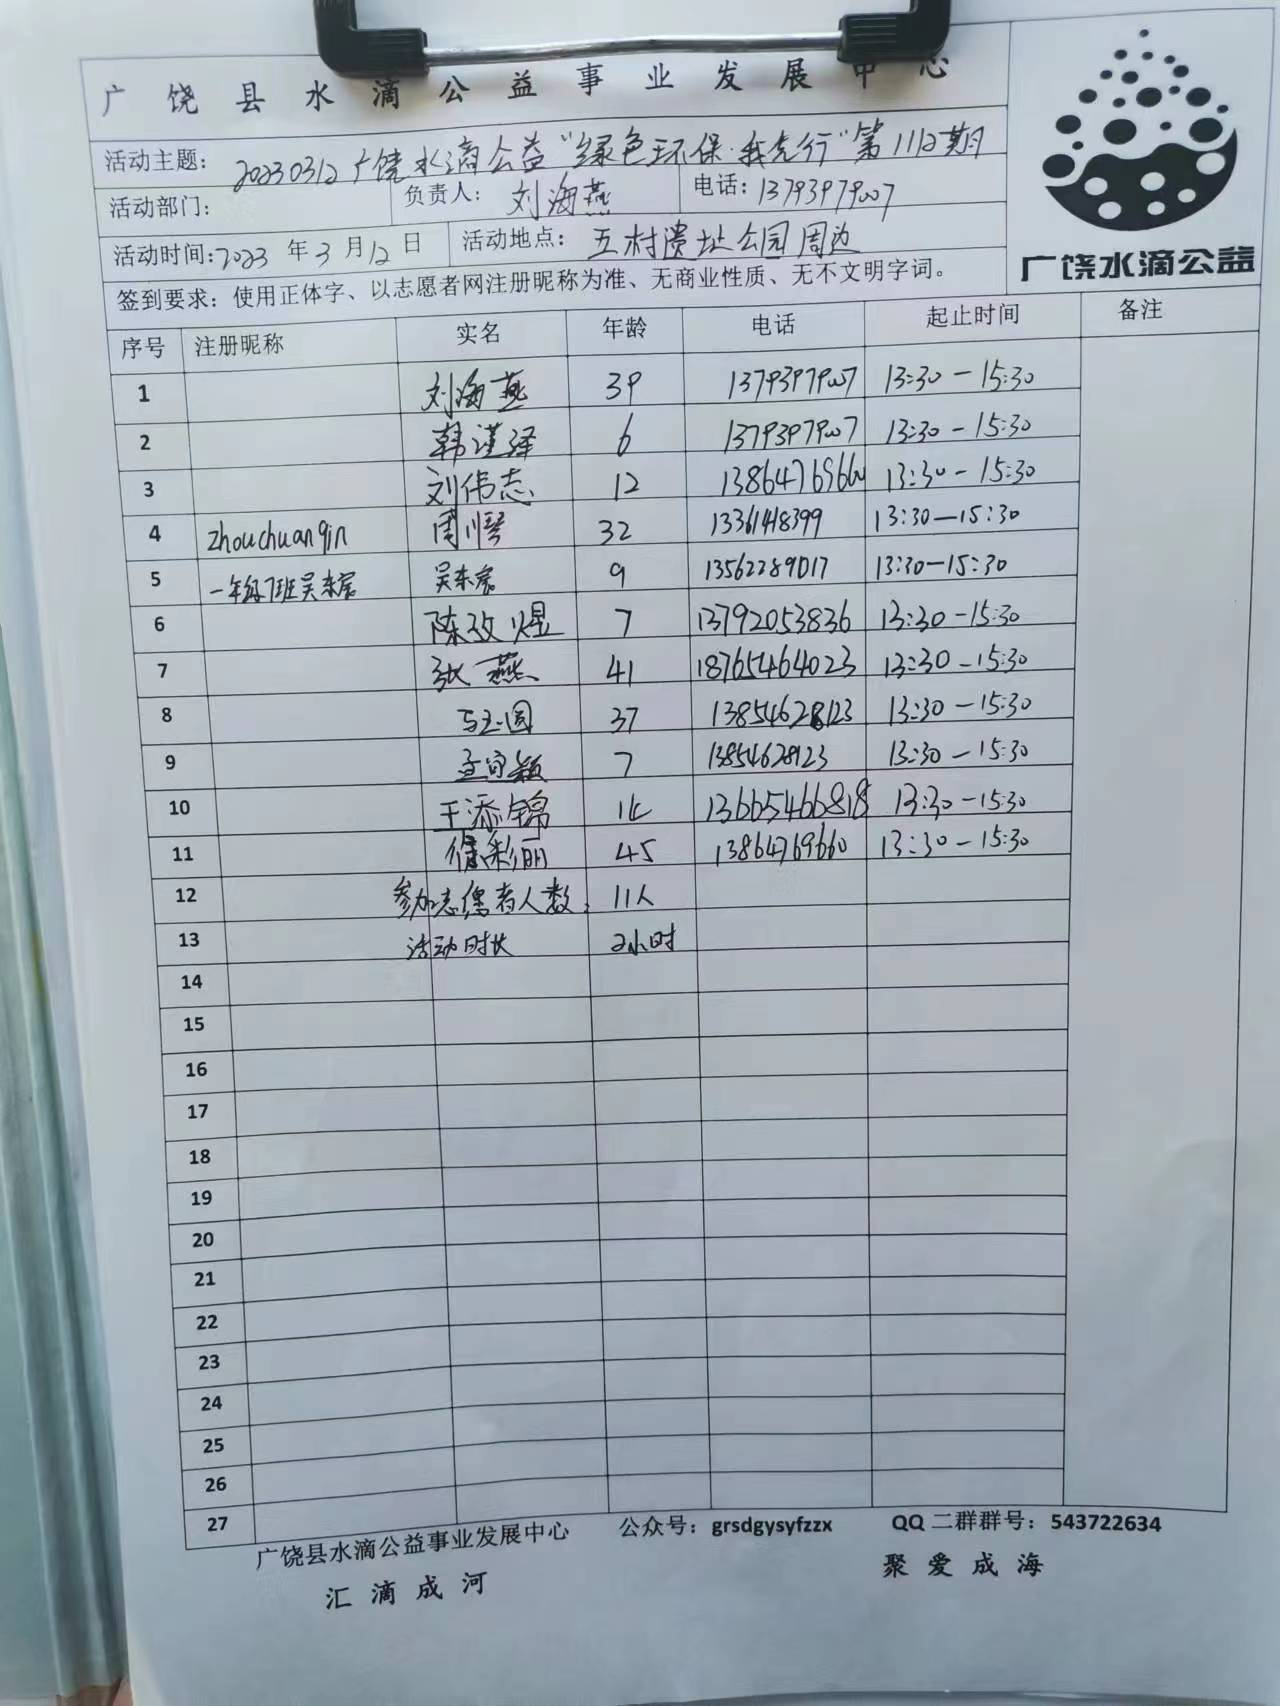 广饶县水滴公益事业发展中心
活动主题: 20230312广饶水滴公益“绿色环保·我先行”第1112期
活动部门: 负责人: 刘海燕 电话: 13793979007
活动时间: 2023年3月12日 活动地点: 五村遗址公园周边
广饶水滴公益
签到要求: 使用正体字、以志愿者网注册昵称为准、无商业性质、无不文明字词。
序号 注册昵称 实名 年龄 电话 起止时间 备注
1 刘海燕 39 13793979007 13:30-15:30
2 韩谨泽 6 13793979007 13:30-15:30
3 刘伟志 12 13864769660 13:30-15:30
4 zhouchuanqin 周 32 13361418399 13:30-15:30
5 一年级7班吴东宸 吴东宸 9 13562289017 13:30-15:30
6 陈孜煜 7 13792053836 13:30-15:30
7 张燕 41 18765464023 13:30-15:30
8 37 13854628123 13:30-15:30
9 7 13854628123 13:30-15:30
10 王添锦 14 13665466818 13:30-15:30
11 彩丽 45 13864769660 13:30-15:30
12 参加志愿者人数: 11人
13 活动时长 2小时
14
15
16
17
18
19
20
21
22
23
24
25
26
27
广饶县水滴公益事业发展中心 公众号: grsdgysyfzzx QQ二群群号: 543722634
汇滴成河 聚爱成海